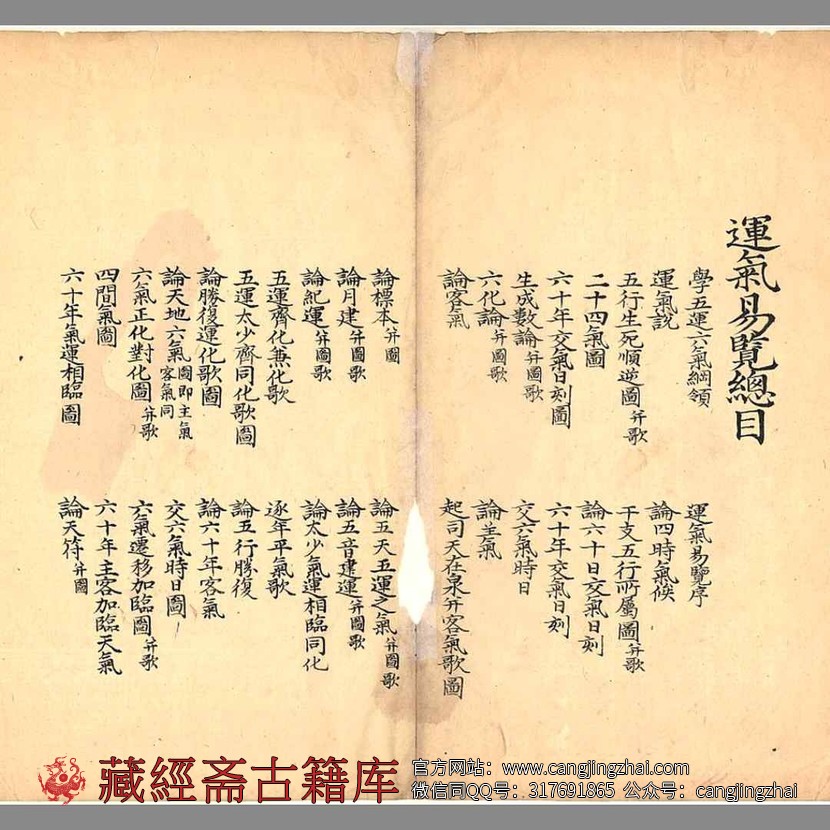 運氣易覽總目
學五運六氣綱領
運氣易覽序
運氣說
論四時氣候
五行生死順逆圖并歌
干支五行所屬圖并歌
二十四氣圖
論六十日交氣日刻
六十年交氣日刻圖
六十年交氣日刻
生成數論并圖歌
交六氣時日
六化論并圖歌
論主氣
論客氣
起司天在泉并客氣歌圖
論標本并圖
論五天五運之氣并圖歌
論月建并圖歌
論五音建運并圖歌
論紀運并圖歌
論太少氣運相臨同化
五運齊化兼化歌
逐年平氣歌
五運太少齊同化歌圖
論五行勝復
論勝復運化歌圖
論六十年客氣
論天地六氣圖即主氣客氣同
交六氣時日圖
六氣正化對化圖并歌
六氣遷移加臨圖并歌
四間氣圖
六十年主客加臨天氣
六十年氣運相臨圖
論天符并圖
藏經斋古籍库
官方网站：www.cangjingzhai.com
微信同QQ号：317691865 公众号：cangjingzhai